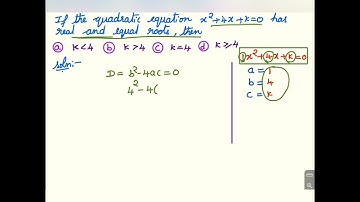 If the quadratic equation x²+4x+k=0 has
real and equal roots, then
ⓐ k<4 ⓑ k>4 ⓒ k=4 ⓓ k≥4
soln:-
D = b²-4ac=0
4²-4(
1x²+4x+k=0
a = 1
b = 4
c = k